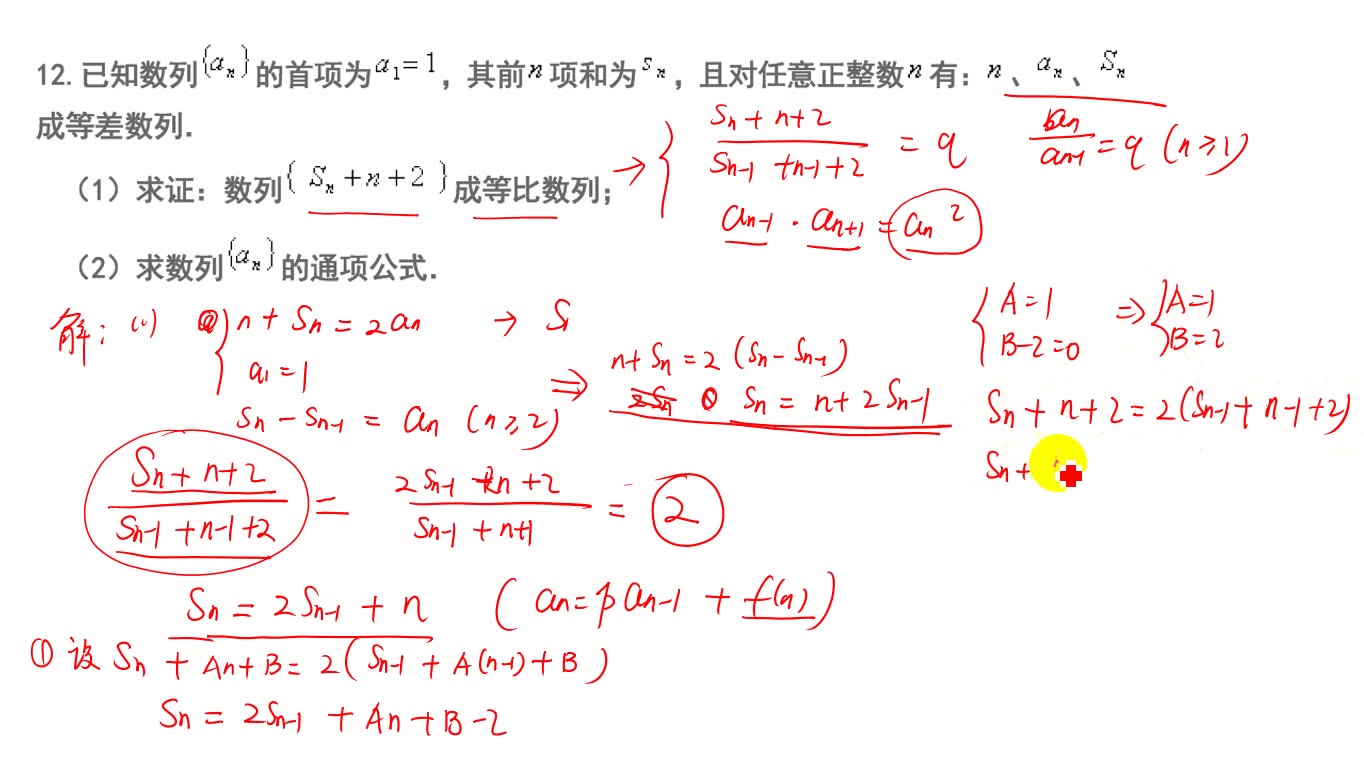 12.已知数列{aₙ}的首项为a₁=1，其前n项和为sₙ，且对任意正整数n有：n、aₙ、Sₙ
成等差数列.
（1）求证：数列{Sₙ+n+2}成等比数列；
（2）求数列{aₙ}的通项公式.
→ { (Sn+n+2)/(Sn-1+n-1+2) = q
an/an-1 = q (n≥1)
an-1·an+1=an²
解：(1) n+Sn=2an → S1
a1=1
Sn-Sn-1=an (n≥2)
⇒ n+Sn=2(Sn-Sn-1)
Sn=n+2Sn-1
{ A=1 ⇒ { A=1
B-2=0 B=2
Sn+n+2=2(Sn-1+n-1+2)
Sn+
(Sn+n+2)/(Sn-1+n-1+2) = (2Sn-1+2n+2)/(Sn-1+n+1) = 2
Sn=2Sn-1+n (an=pan-1+f(n))
① 设 Sn+An+B=2(Sn-1+A(n-1)+B)
Sn=2Sn-1+An+B-2